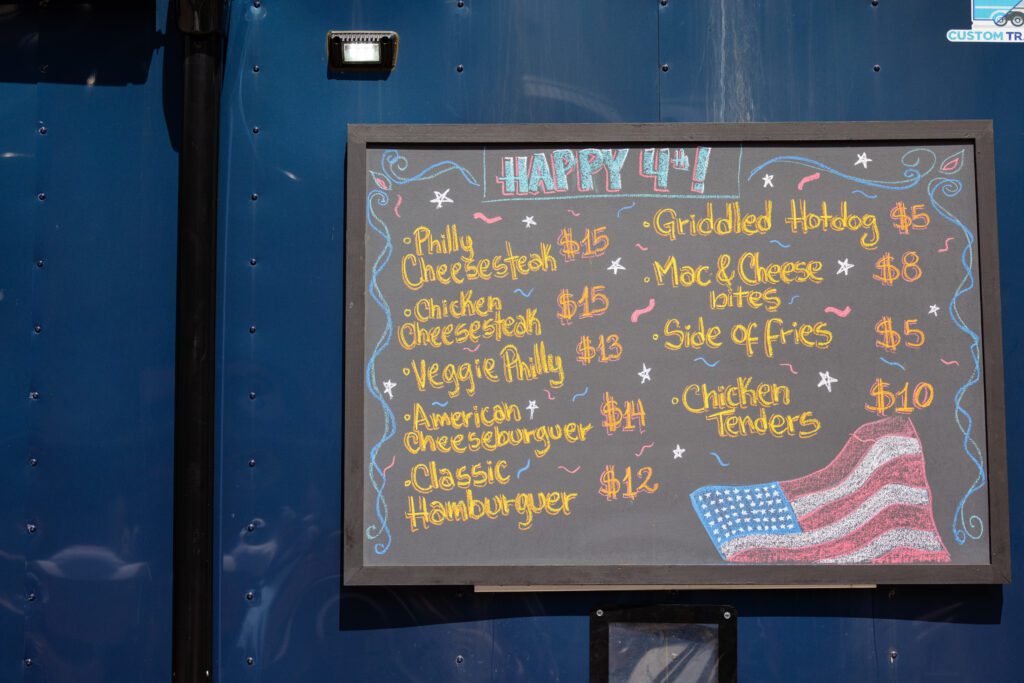 CUSTOM TR
HAPPY 4th!
·Philly
Cheesesteak $15
·Chicken
Cheesesteak $15
·Veggie Philly $13
·American
Cheeseburguer $14
·Classic
Hamburguer $12
·Griddled Hotdog $5
·Mac & Cheese
bites $8
·Side of fries $5
·Chicken
Tenders $10